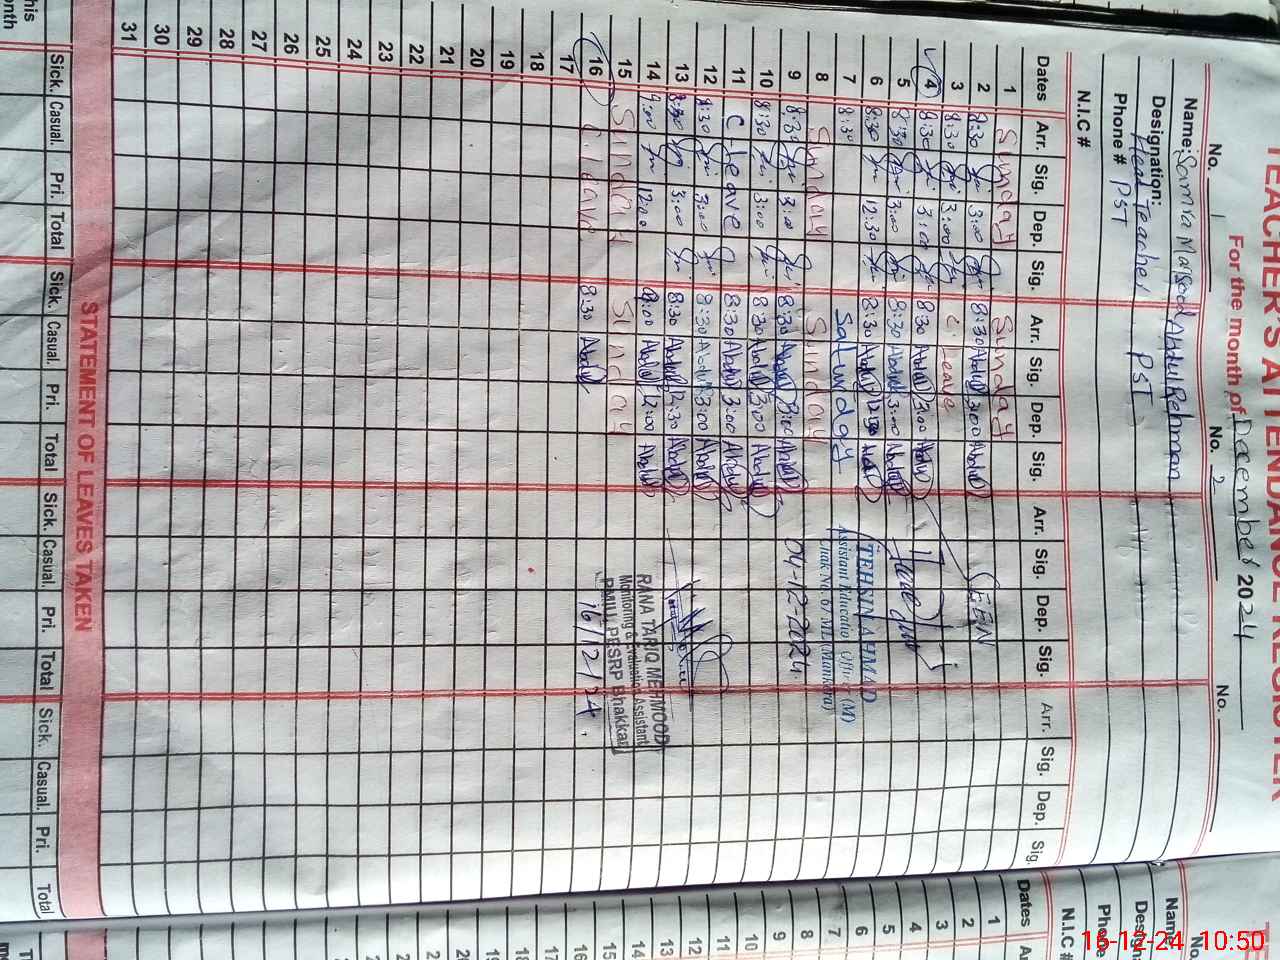 TEACHER'S ATTENDANCE REGISTER
For the month of December 2024
No. 1 No. 2 No.
Name: Samra Maqsood Abdul Rehman
Designation: Head Teacher PST
Phone # PST
N.I.C #
Dates Arr. Sig. Dep. Sig. Arr. Sig. Dep. Sig. Arr. Sig. Dep. Sig. Arr. Sig. Dep. Sig.
1 Sunday Sunday
2 8:30 3:00 8:30 Abdul 3:00 Abdul SEEN
3 8:30 3:00 C. Leave
4 8:30 3:00 8:30 Abdul 3:00 Abdul
5 8:30 3:00 8:30 Abdul 3:00 Abdul
6 8:30 12:30 8:30 Abdul 12:30 Abdul TEHSIN AHMAD
7 8:30 Saturday Assistant Education Officer (M)
Chak No. 67 ML (Mankera)
8 Sunday Sunday
9 8:30 3:00 8:30 Abdul 3:00 Abdul 04-12-2024
10 8:30 3:00 8:30 Abdul 3:00 Abdul
11 C-leave 8:30 Abdul 3:00 Abdul
12 8:30 3:00 8:30 Abdul 3:00 Abdul
13 8:30 3:00 8:30 Abdul 12:30 Abdul
14 9:00 12:00 9:00 Abdul 12:00 Abdul RANA TARIQ MEHMOOD
15 Sunday Sunday Monitoring & Evaluation Assistant
PMIU, PESRP Bhakkar
16 C. leave 8:30 Abdul 16/12/24
17
18
19
20
21
22
23
24
25
26
27
28
29
30
31
STATEMENT OF LEAVES TAKEN
Sick. Casual. Pri. Total Sick. Casual. Pri. Total Sick. Casual. Pri. Total Sick. Casual. Pri. Total
his
onth
No.
Name
Design
Phone
N.I.C #
Dates
1
2
3
4
5
6
7
8
9
10
11
12
13
14
15
16
16-12-24 10:50